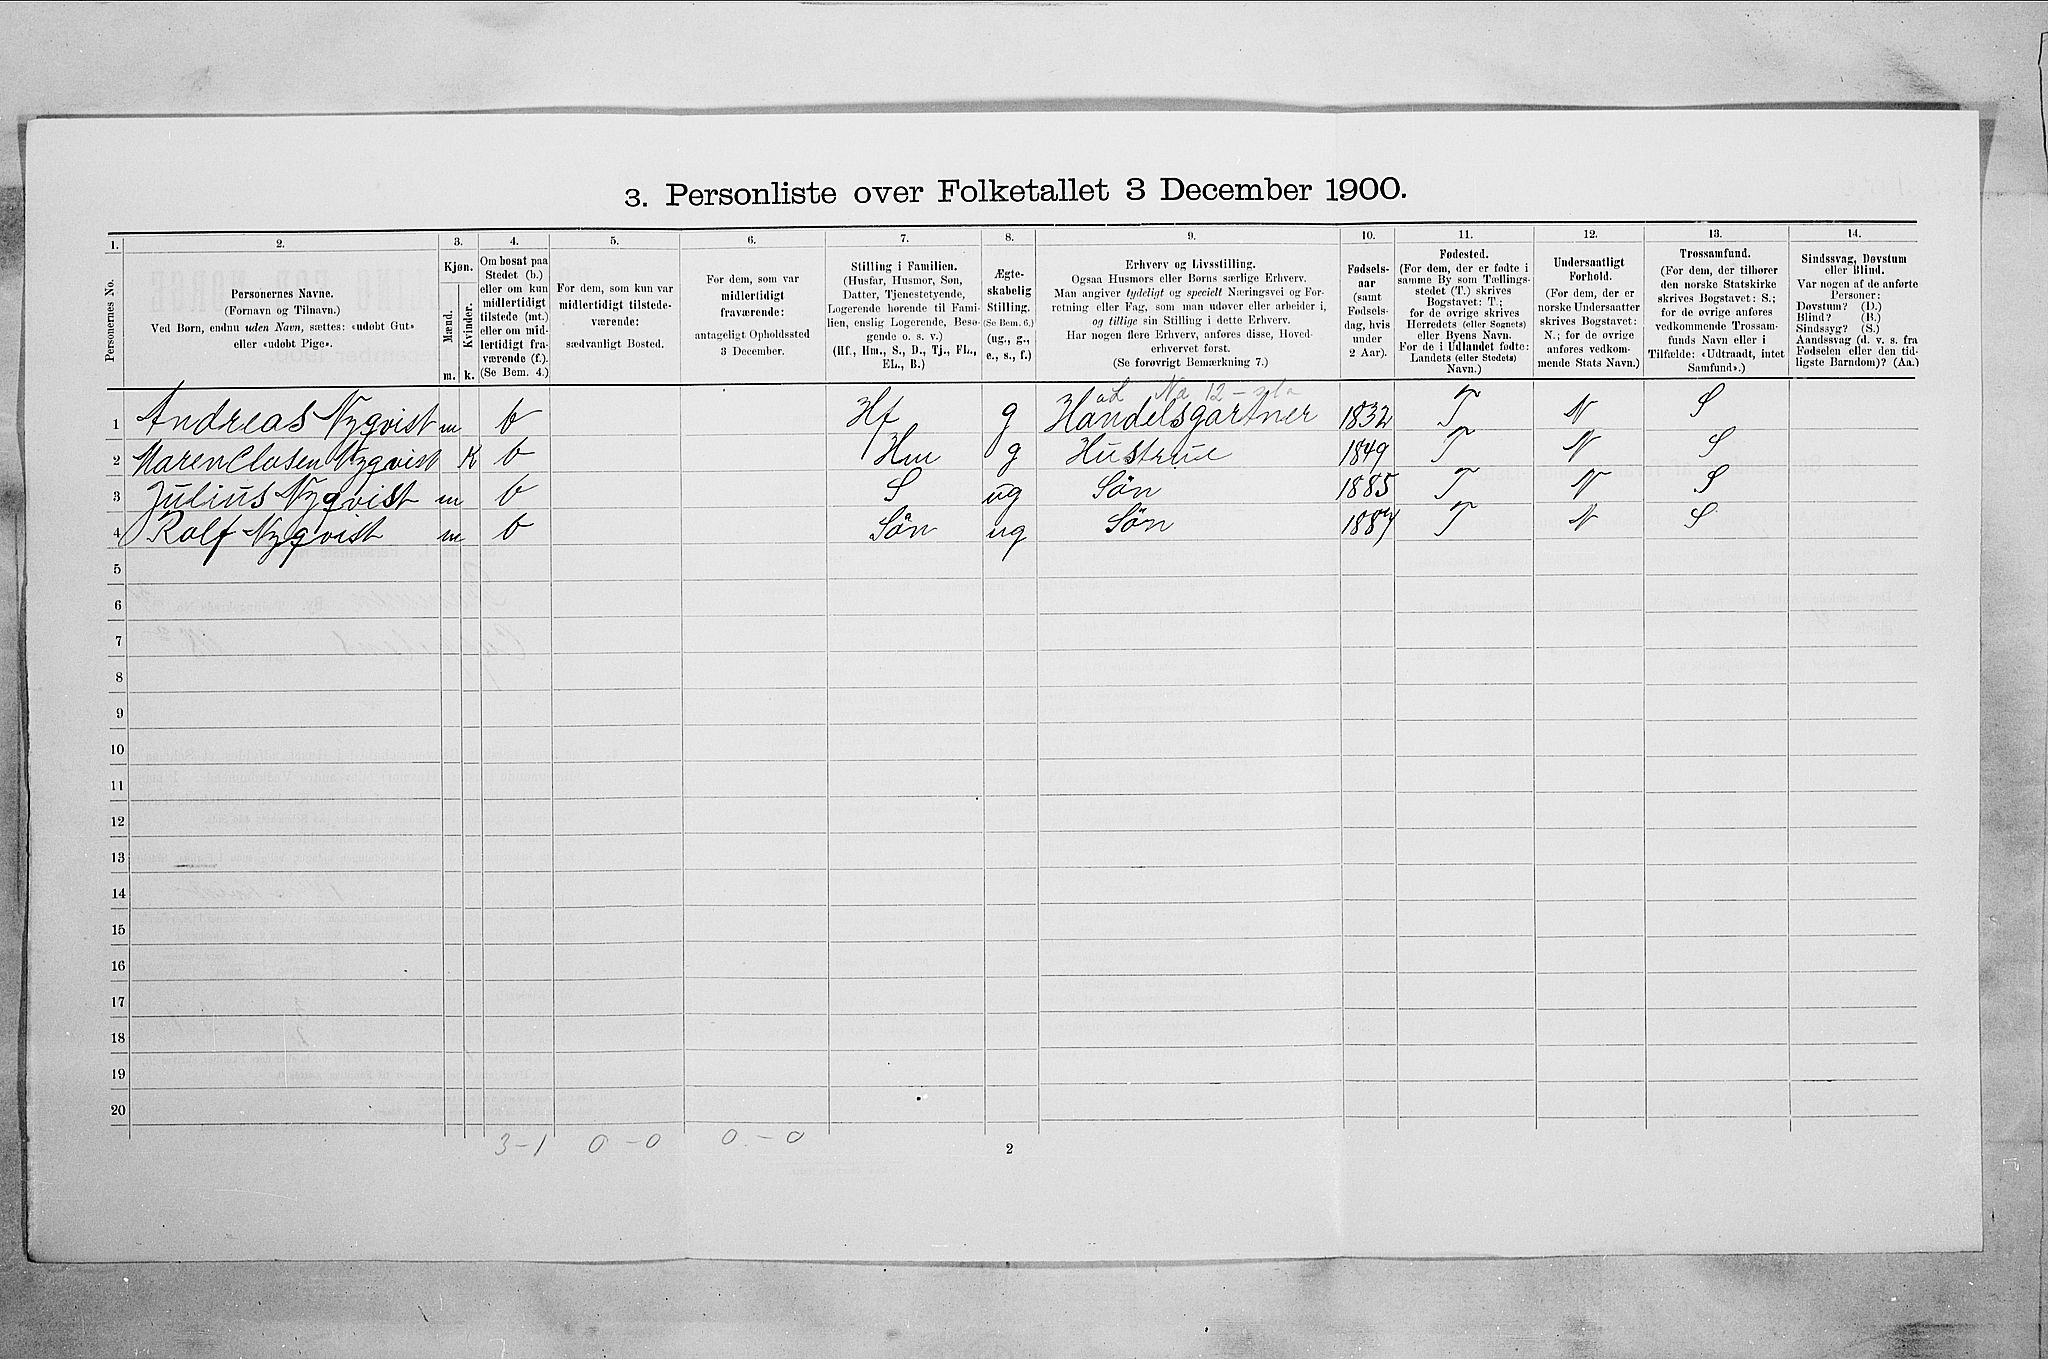 3. Personliste over Folketallet 3 December 1900.
1. 2. 3. 4. 5. 6. 7. 8. 9. 10. 11. 12. 13. 14.
Personernes No.
Personernes Navne.
(Fornavn og Tilnavn.)
Ved Børn, endnu uden Navn, sættes: «udøbt Gut»
eller «udøbt Pige».
Kjøn.
Mænd.
Kvinder.
m. k.
Om bosat paa
Stedet (b.)
eller om kun
midlertidigt
tilstede (mt.)
eller om mid-
lertidigt fra-
værende (f.).
(Se Bem. 4.)
For dem, som kun var
midlertidigt tilstede-
værende:
sædvanligt Bosted.
For dem, som var
midlertidigt
fraværende:
antageligt Opholdssted
3 December.
Stilling i Familien.
(Husfar, Husmor, Søn,
Datter, Tjenestetyende,
Logerende hørende til Fami-
lien, enslig Logerende, Besø-
gende o. s. v.)
(Hf., Hm., S., D., Tj., FL.,
EL., B.)
Ægte-
skabelig
Stilling.
(Se Bem. 6.)
(ug., g.,
e., s., f.)
Erhverv og Livsstilling.
Ogsaa Husmors eller Børns særlige Erhverv.
Man angiver tydeligt og specielt Næringsvei og For-
retning eller Fag, som man udøver eller arbeider i,
og tillige sin Stilling i dette Erhverv.
Har nogen flere Erhverv, anføres disse, Hoved-
erhvervet først.
(Se forøvrigt Bemærkning 7.)
Fødsels-
aar
(samt
Fødsels-
dag, hvis
under
2 Aar).
Fødested.
(For dem, der er fødte i
samme By som Tællings-
stedet (T.) skrives
Bogstavet: T.;
for de øvrige skrives
Herredets (eller Sognets)
eller Byens Navn.
For de i Udlandet fødte:
Landets (eller Stedets)
Navn.)
Undersaatligt
Forhold.
(For dem, der er
norske Undersaatter
skrives Bogstavet:
N.; for de øvrige
anføres vedkom-
mende Stats Navn.)
Trossamfund.
(For dem, der tilhører
den norske Statskirke
skrives Bogstavet: S.;
for de øvrige anføres
vedkommende Trossam-
funds Navn eller i
Tilfælde: «Udtraadt, intet
Samfund».)
Sindssvag, Døvstum
eller Blind.
Var nogen af de anførte
Personer:
Døvstum? (D.)
Blind? (B.)
Sindssyg? (S.)
Aandssvag (d. v. s. fra
Fødselen eller den tid-
ligste Barndom)? (Aa.)
1 Andreas Nyqvist m b Hf g Handelsgartner 1832 T N S
2 Maren Clasen Nyqvist K b Hm g Hustrue 1849 T N S
3 Julius Nyqvist m b S ug Søn 1885 T N S
4 Rolf Nyqvist m b Søn ug Søn 1887 T N S
5
6
7
8
9
10
11
12
13
14
15
16
17
18
19
20
3-1 0-0 0-0
2